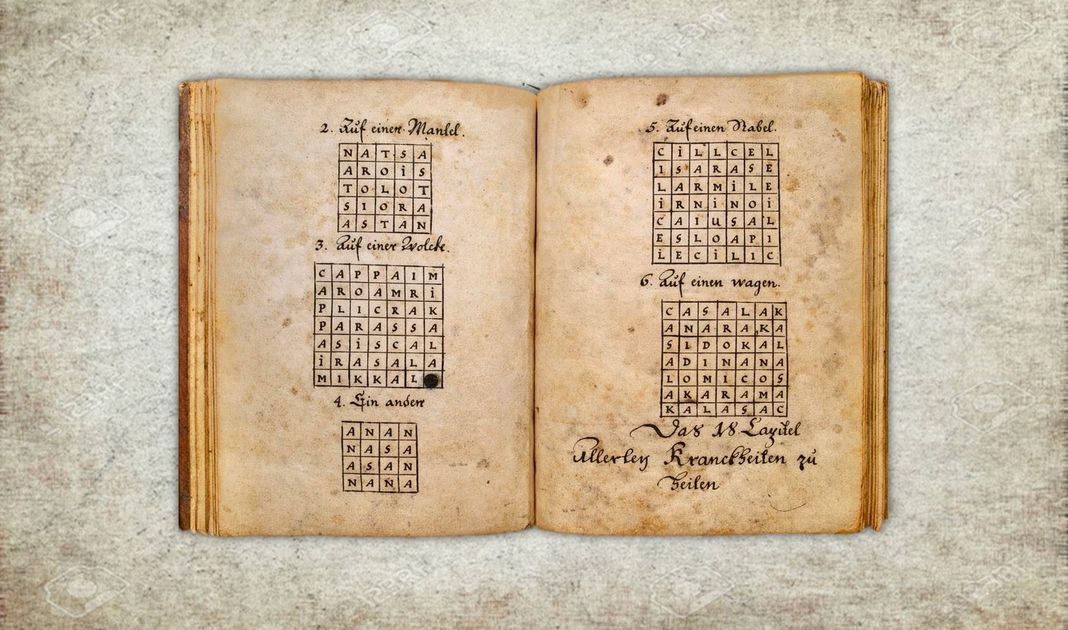 2. Auf einen Mantel.
N A T S A
A R O i S
T O L O T
S I O R A
A S T A N
3. Auf einer Wolcke.
C A P P A I M
A R O A M R i
P L I C R A K
P A R A S S A
A S i S C A L
i R A S A L A
M I K K A L
4. Ein ander
A N A N
N A S A
A S A N
N A N A
5. Auf einen Nabel.
C i L L C E L
I S A R A S E
L A R M i L E
i R N i N O i
C A I U S A L
E S L O A P I
i E C i L I C
6. Auf einen wagen.
C A S A L A K
A N A R A K A
S I D O K A L
A D I N A N A
L O M I C O S
A K A R A M A
K A L A S A C
Das 18 Capitel
Allerley Kranckheiten zu
heilen